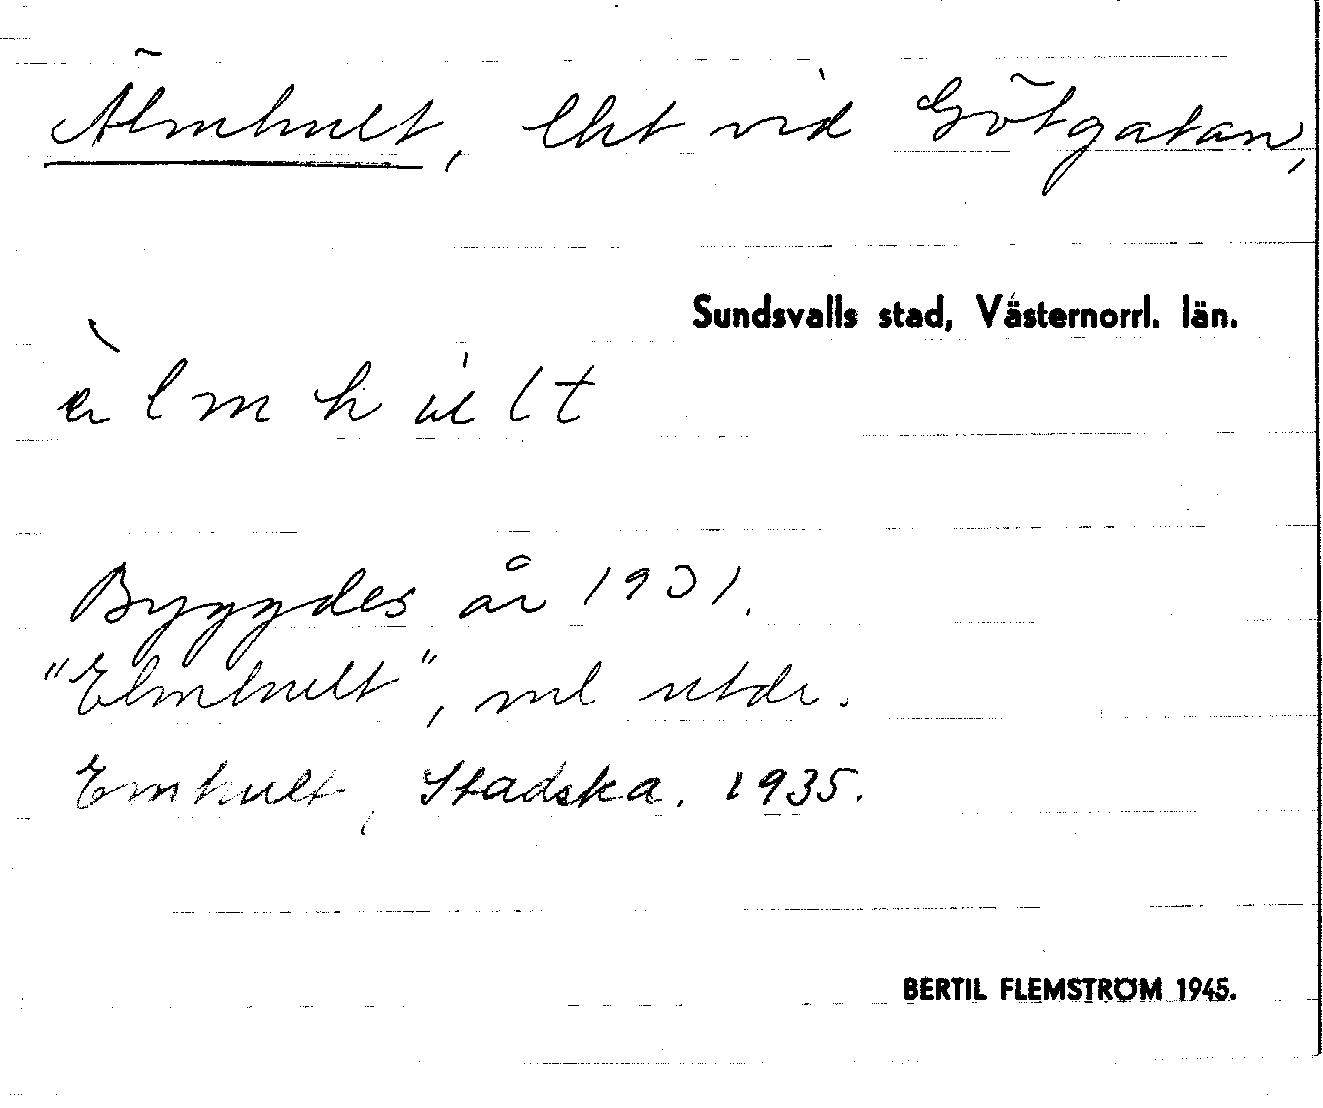 Älmhult, lht vid Götgatan,
Sundsvalls stad, Västernorrl. län.
Byggdes år 1931.
"Elmhult", enl utdr.
Emhult, Stadska. 1935.
BERTIL FLEMSTRÖM 1945.